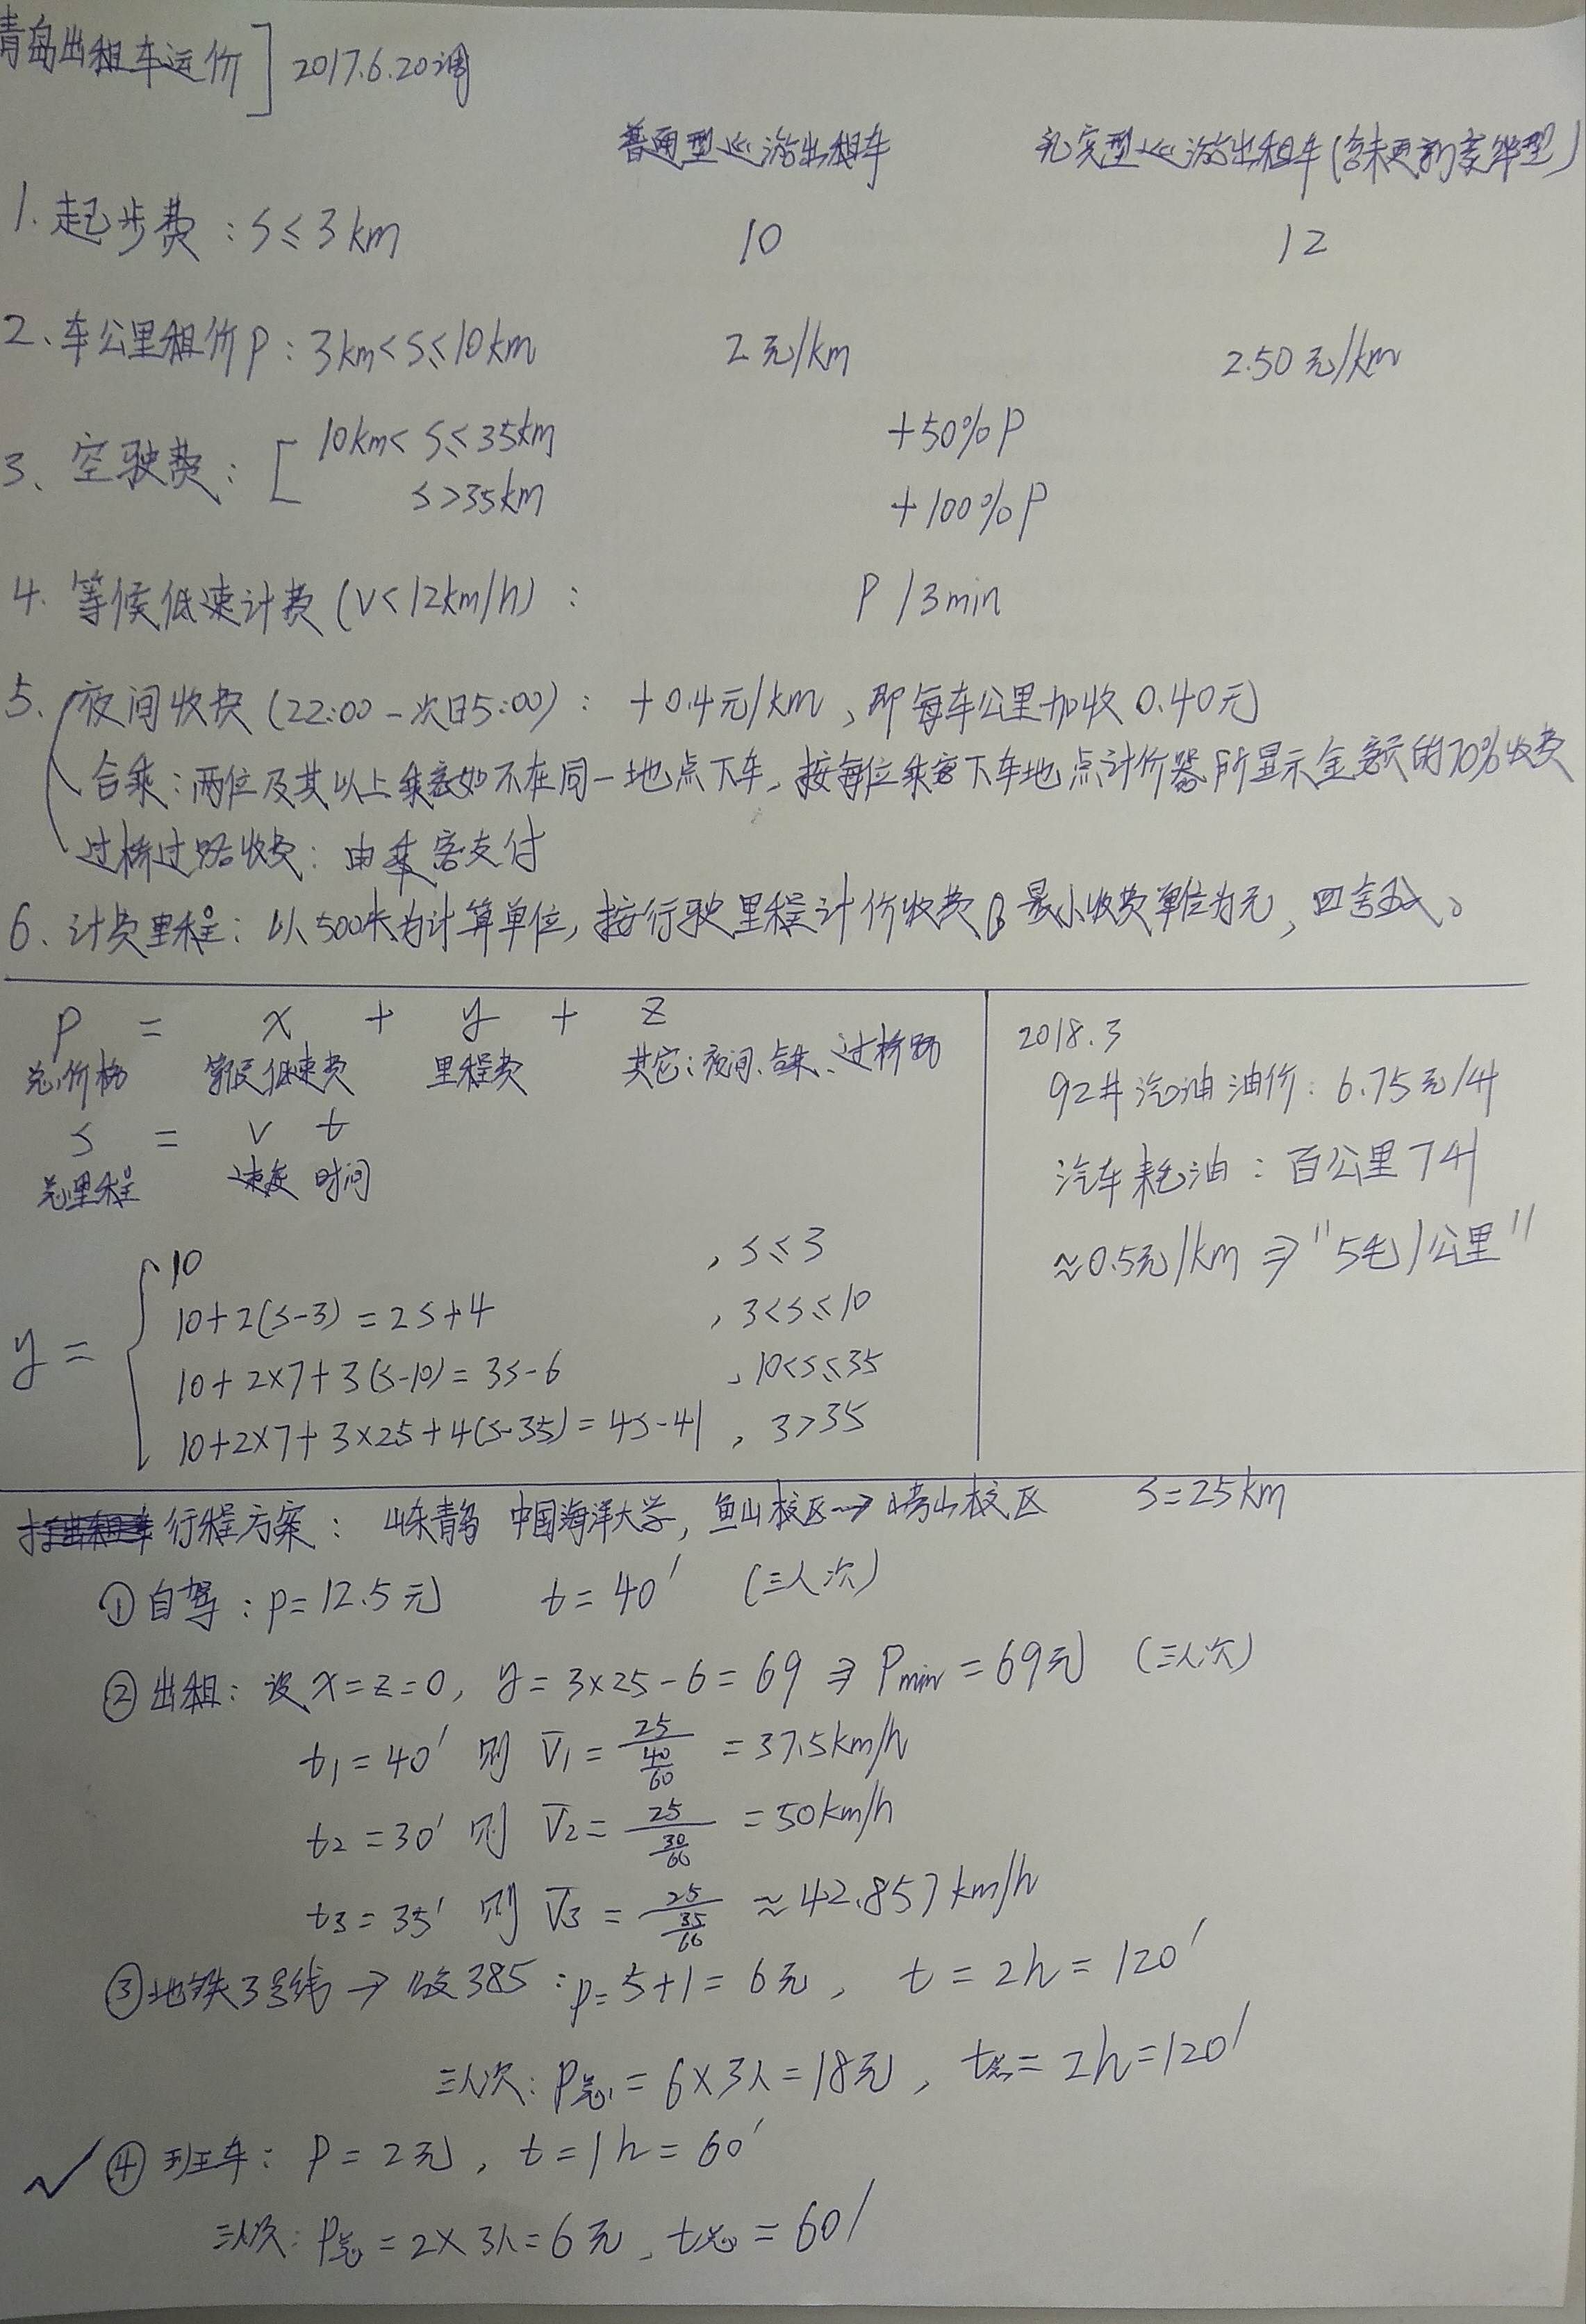 青岛出租车运价] 2017.6.20调
普通型巡游出租车 礼宾型巡游出租车(含未更新豪华型)
1. 起步费：s≤3km 10 12
2、车公里租价P：3km<s≤10km 2元/km 2.50元/km
3、空驶费：[ 10km<s≤35km +50%P
s>35km +100%P
4. 等候低速计费(v<12km/h)： P/3min
5. 夜间收费(22:00-次日5:00)：+0.4元/km，即每车公里加收0.40元
合乘：两位及其以上乘客如不在同一地点下车，按每位乘客下车地点计价器所显示金额的70%收费
过桥过路收费：由乘客支付
6、计费里程：以500米为计算单位，按行驶里程计价收费。最小收费单位为元，四舍五入。
P = x + y + z
总价格 等候低速费 里程费 其它：夜间、合乘、过桥路
s = v t
总里程 速度 时间
y = { 10 , s≤3
10+2(s-3)=2s+4 , 3<s≤10
10+2×7+3(s-10)=3s-6 , 10<s≤35
10+2×7+3×25+4(s-35)=4s-41 , 3>35
2018.3
92#汽油油价：6.75元/升
汽车耗油：百公里7升
≈0.5元/km ⇒"5毛/公里"
行程方案：山东青岛 中国海洋大学，鱼山校区→崂山校区 s=25km
①自驾：p=12.5元 t=40′ (三人次)
②出租：设x=z=0，y=3×25-6=69 ⇒ Pmin=69元 (三人次)
t1=40′ 则 V̄1=25/(40/60)=37.5km/h
t2=30′ 则 V̄2=25/(30/60)=50km/h
t3=35′ 则 V̄3=25/(35/60)≈42.857km/h
③地铁3号线→公交385：p=5+1=6元，t=2h=120′
三人次：P总=6×3人=18元，t总=2h=120′
✓④班车：P=2元，t=1h=60′
三人次：P总=2×3人=6元，t总=60′